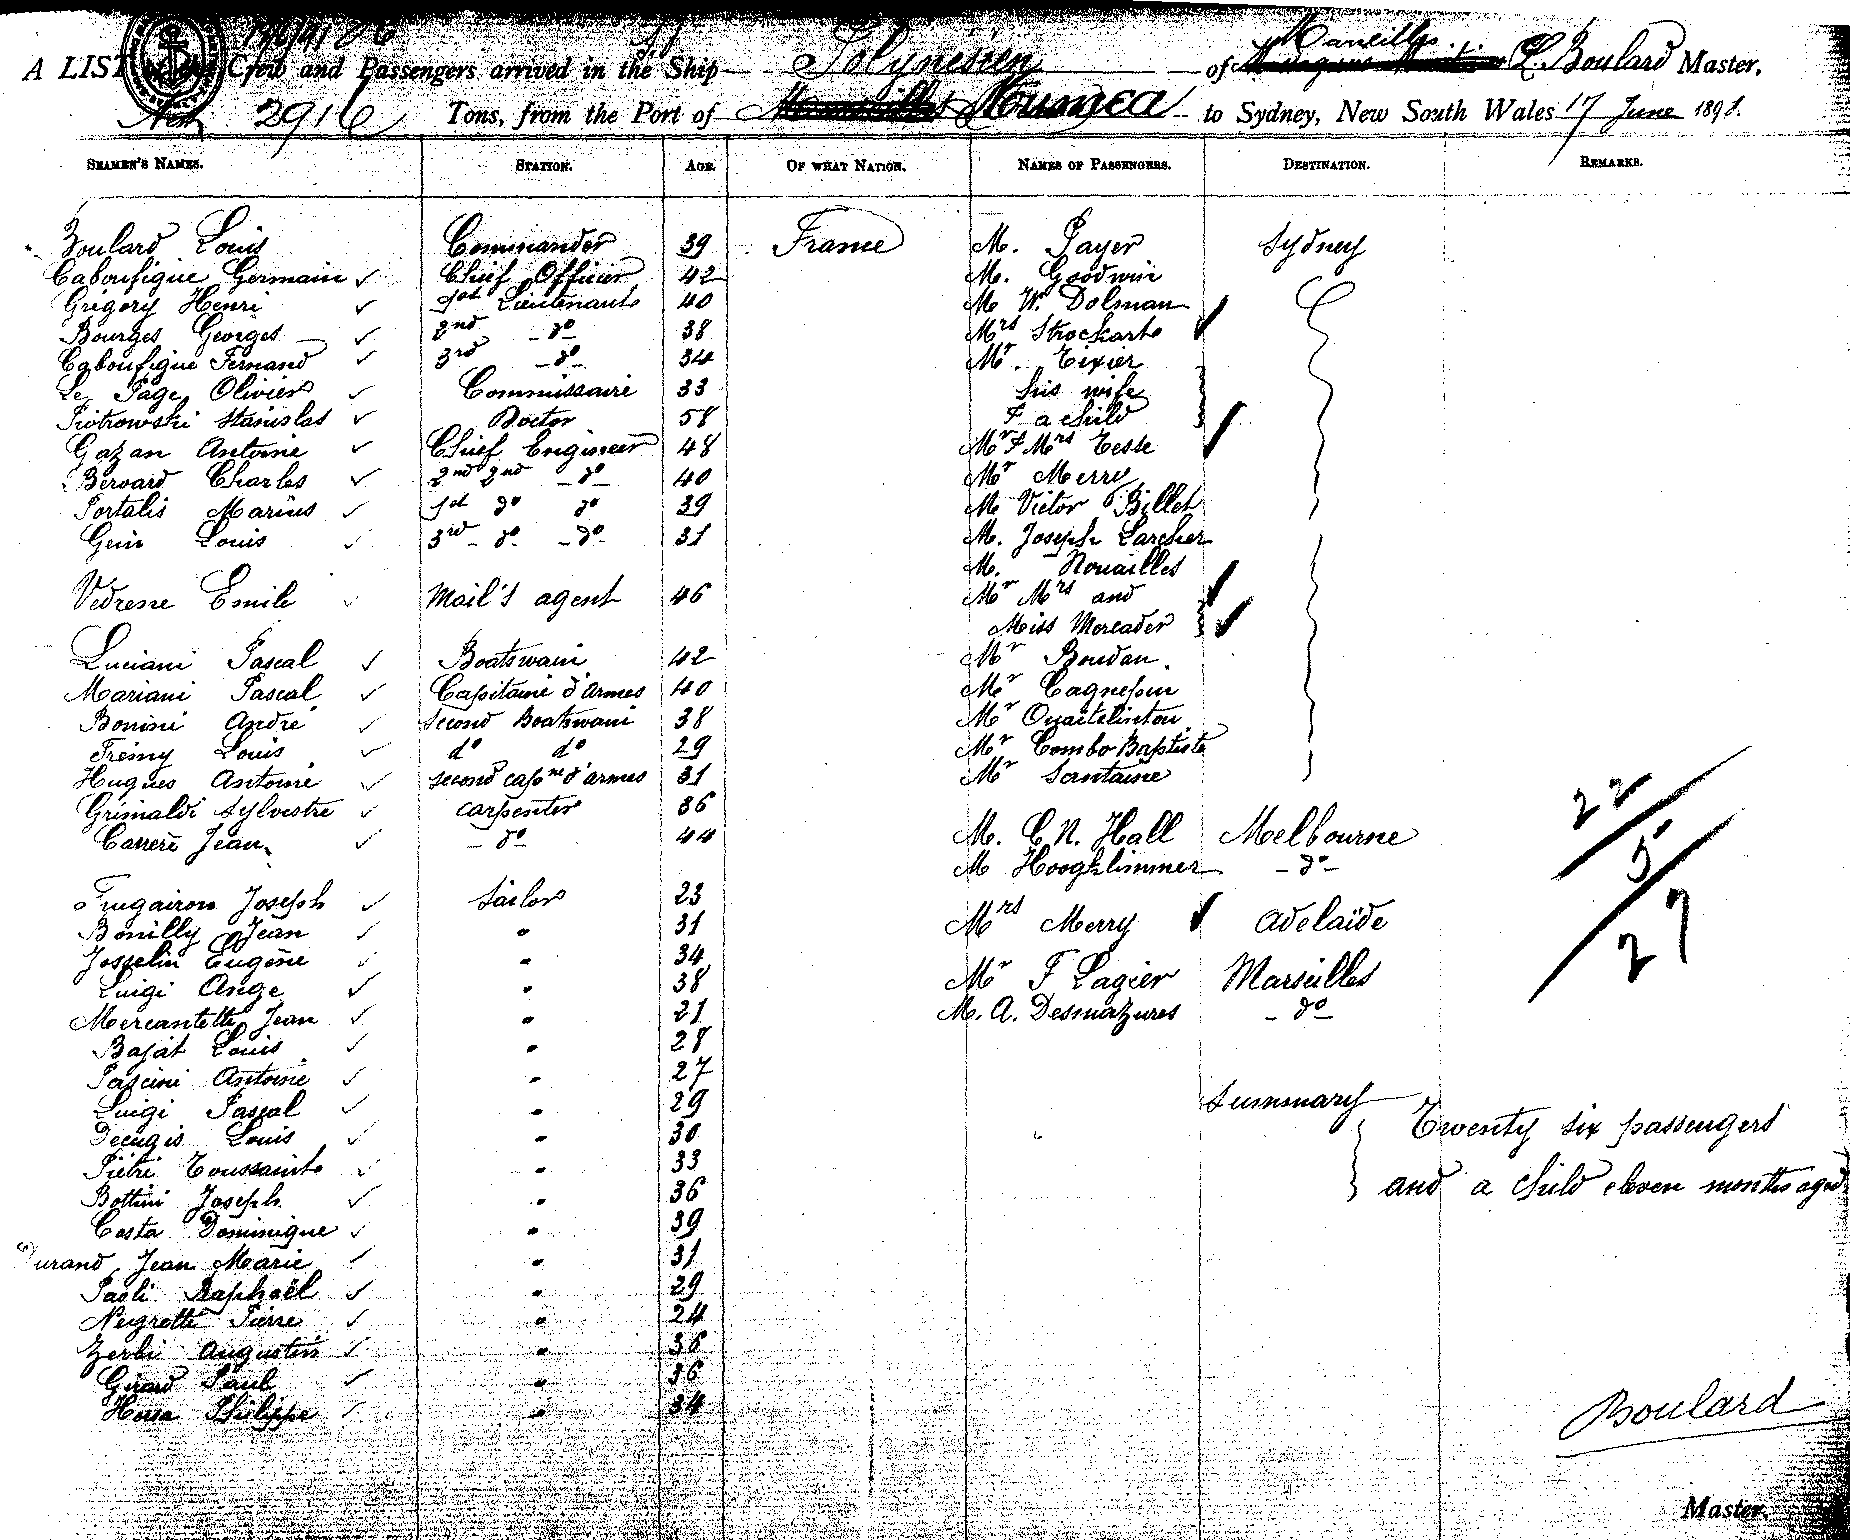 A LIST of the Crew and Passengers arrived in the Ship Polynesien of Marseilles L. Boulard Master,
2916 Tons, from the Port of Noumea to Sydney, New South Wales 17 June 1898.
SEAMEN'S NAMES. STATION. AGE. OF WHAT NATION. NAMES OF PASSENGERS. DESTINATION. REMARKS.
Boulard Louis Commander 39 France M. Payer Sydney
Caboufigue Germain Chief Officer 42 M. Goodwin
Grigory Henri 1st Lieutenant 40 M W. Dolman
Bourges Georges 2nd do 38 Mrs Strockart
Caboufigue Fernand 3rd do 34 Mr. Tixier
Le Page Olivier Commissaire 33 his wife
Piotrowski Stanislas Doctor 58 & a child
Gazan Antoine Chief Engineer 48 Mr & Mrs Tesse
Bervard Charles 2nd 2nd do 40 Mr Merry
Portalis Marius 1st do do 39 M Victor Billet
Gein Louis 3rd do do 31 M. Joseph Larcher
M. Nouailles
Vedrenne Emile Mail's agent 46 Mr Mrs and
Miss Mercader
Luciani Pascal Boatswain 42 Mr Boudan.
Mariani Pascal Capitaine d'armes 40 Mr Cagnepin
Bonini André second Boatswain 38 Mr Ouaitelinton
Frémy Louis do do 29 Mr Combo Baptiste
Hugues Antoine second capne d'armes 31 Mr Santaine
Grimaldi Sylvestre carpenter 36
Carrere Jean do 44 M. C. N. Hall Melbourne
22
M Hooghlimmer do
5
Fugairon Joseph Sailor 23
27
Bonilly Jean " 31 Mrs Merry Adelaïde
Josselin Eugène " 34
Luigi Ange " 38 Mr F Lagier Marseilles
Mercantetti Jean " 21 M. A. Desmazures do
Bajat Louis " 28
Pascini Antoine " 27
Luigi Pascal " 29 Summary
Decugis Louis " 30 Twenty six passengers
Pietri Toussaint " 33
Bottini Joseph " 36 and a child eleven months aged
Costa Dominique " 39
Durand Jean Marie " 31
Paoli Raphaël " 29
Negrotti Pierre " 24
Zerbi Augustin " 36
Girard Paul " 36
Philippe " 34
Boulard
Master.